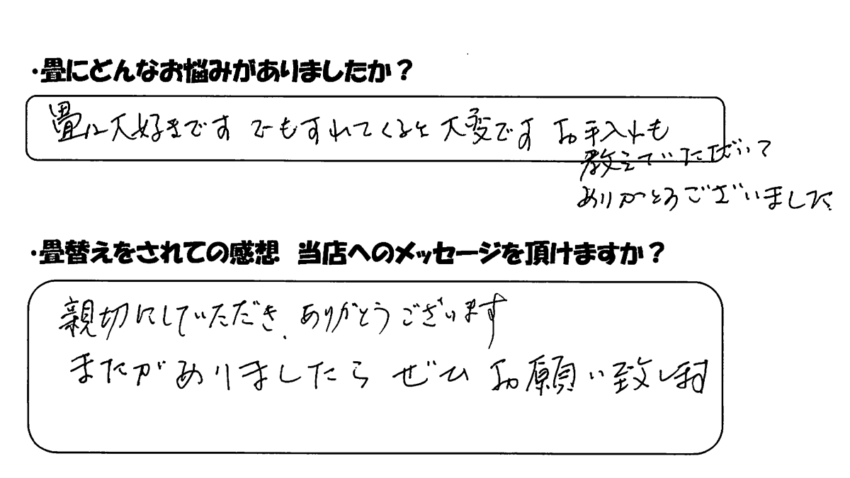 ・畳にどんなお悩みがありましたか？
畳は大好きです でもすれてくると大変です お手入れも
教えていただいて
ありがとうございました
・畳替えをされての感想 当店へのメッセージを頂けますか？
親切にしていただき、ありがとうございます
またがありましたら ぜひ お願い致します